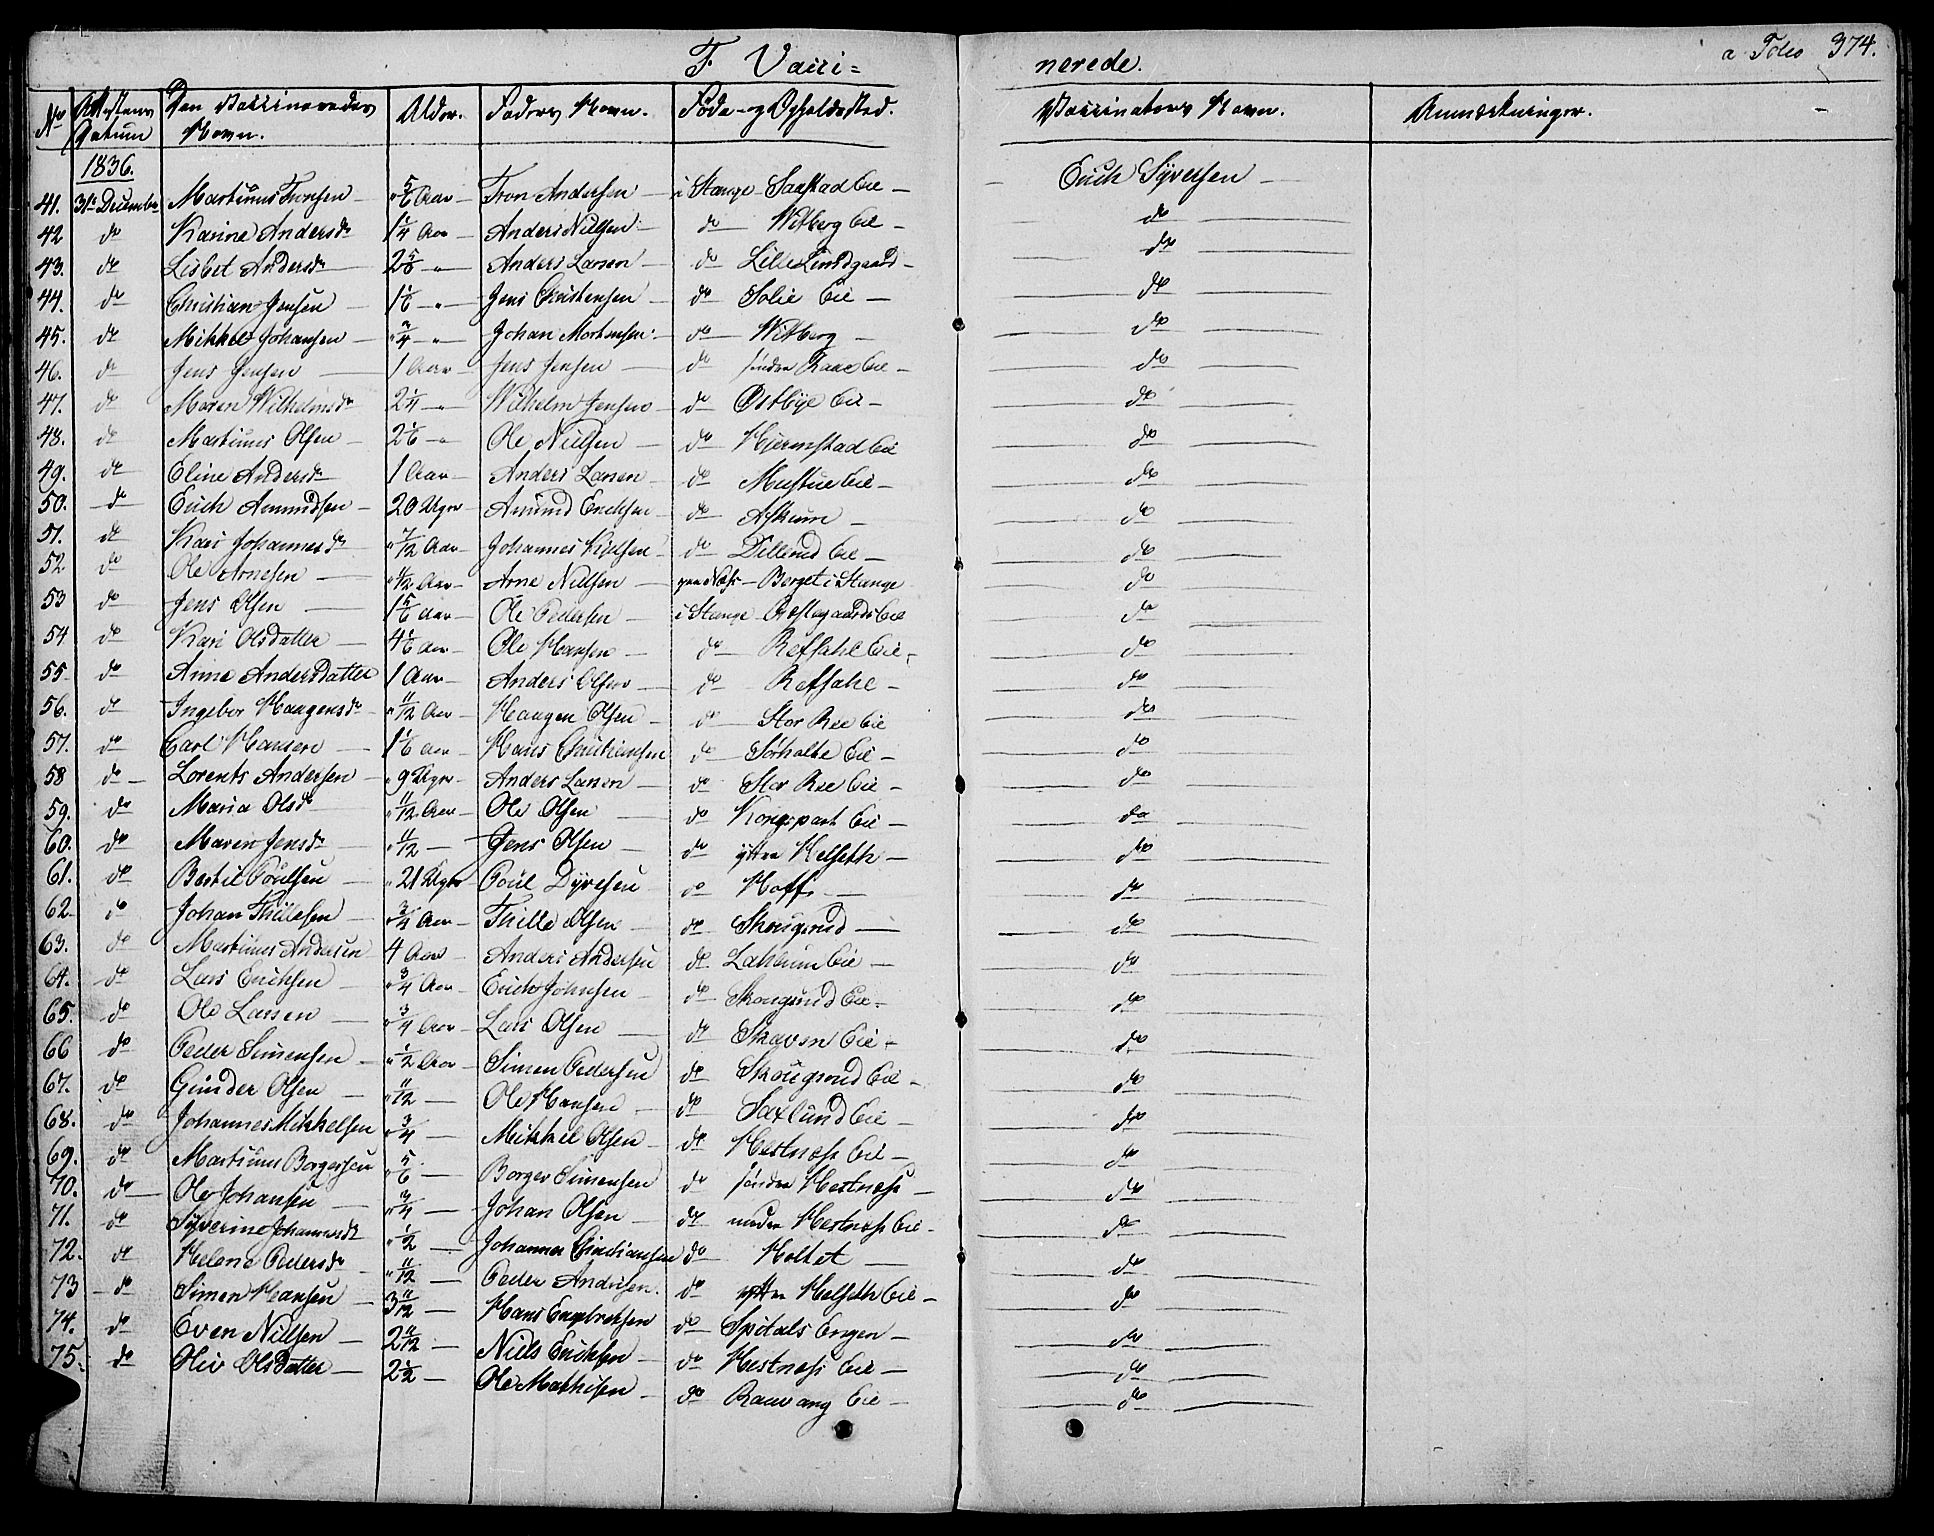 F. Vacci=
nerede.
a Folio 374.
No Attestens Datum Den Vaccineredes Navn. Alder. Faders Navn. Føde- og Opholdssted. Vaccinateurs Navn. Anmærkninger.
1836.
41. 31te December Martinus Tronsen 5/6 Aar Tron Andersen i Stange Saxstad Eie Erich Syversen
42 do Karine Andersdr 1 1/4 Aar Anders Nilsen do Witberg Eie do
43. do Lisbet Andersdr 2 5/6 " Anders Larsen do Lille Lindgaard do
44. do Christian Jensen 1 1/6 " Jens Christensen do Solie Eie do
45. do Mikkel Johansen 3/4 " Johan Mortensen do Witberg do
46. do Jens Jensen 1 Aar Jens Jensen do søndre Raae Eie do
47. do Maren Wilhelmsdr 2 1/4 " Wilhelm Jensen do Østbye Eie do
48. do Martinus Olsen 2 1/6 " Ole Nilsen do Hjermstad Eie do
49. do Eline Andersdr 1 Aar Anders Larsen do Mustue Eie do
50. do Erich Amundsen 20 Uger Amund Erichsen do Askum do
51. do Kari Johannesdr 7/12 Aar Johannes Nielsen do Dillerud Eie do
52 do Ole Arnesen 1/2 Aar Arne Nilsen paa Næss Berget i Stange do
53 do Jens Olsen 1 5/6 Aar Ole Pedersen i Stange Præstegaards Eie do
54 do Kari Olsdatter 4 1/6 Aar Ole Hansen do Refsahl Eie do
55 do Anne Andersdatter 1 Aar Anders Olsen do Refsahl do
56. do Ingebor Haagensdr 11/12 Aar Haagen Olsen do Stor Ree Eie do
57. do Carl Hansen 1 1/6 Aar Hans Christiansen do Sørholte Eie do
58 do Lorents Andersen 9 Uger Anders Larsen do Stor Ree Eie do
59. do Maria Olsdr 11/12 Aar Ole Olsen do Kongspart Eie do
60. do Maren Jensdr 11/12 Jens Olsen do yttre Helseth do
61. do Bertil Poulsen 21 Uger Poul Dyresen do Hoff do
62 do Johan Thillesen 3/4 Aar Thille Olsen do Skougrud do
63. do Martinus Andersen 4 Aar Anders Andersen do Lahlum Eie do
64. do Lars Erichsen 3/4 Aar Erich Johnsen do Skougrud Eie do
65. do Ole Larsen 3/4 Aar Lars Olsen do Skaven Eie do
66 do Peder Simensen 1/2 Aar Simen Pedersen do Skougrud Eie do
67. do Gunder Olsen 11/12 Ole Hansen do Saxlund Eie do
68. do Johannes Mikkelsen 3/4 Mikkel Olsen do Hestnæss Eie do
69. do Martinus Borgersen 5/6 Borger Simensen do søndre Hestnæss do
70. do Ole Johansen 3/4 Johan Olsen do nedre Hestnæss Eie do
71. do Syverine Johannesdr 1/2 Johannes Christiansen do Holtet do
72. do Helene Pedersdr 11/12 Peder Andersen do yttre Helseth Eie do
73 do Simen Hansen 3 11/12 Hans Engebretsen do Spitals Engen do
74. do Even Nilsen 2 11/12 Niels Erichsen do Hestnæss Eie do
75. do Oliv Olsdatter 2 1/2 Ole Mathisen do Rauvang Eie do